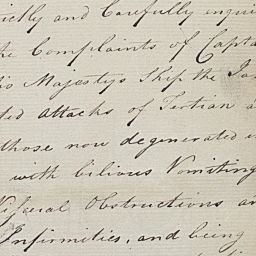 and Carefully
the Complaints of
Majesty's Ship the
attacks of Tertian
those now degenerated
with bilious Vomiting
Visceral Obstructions
Infirmities, and being